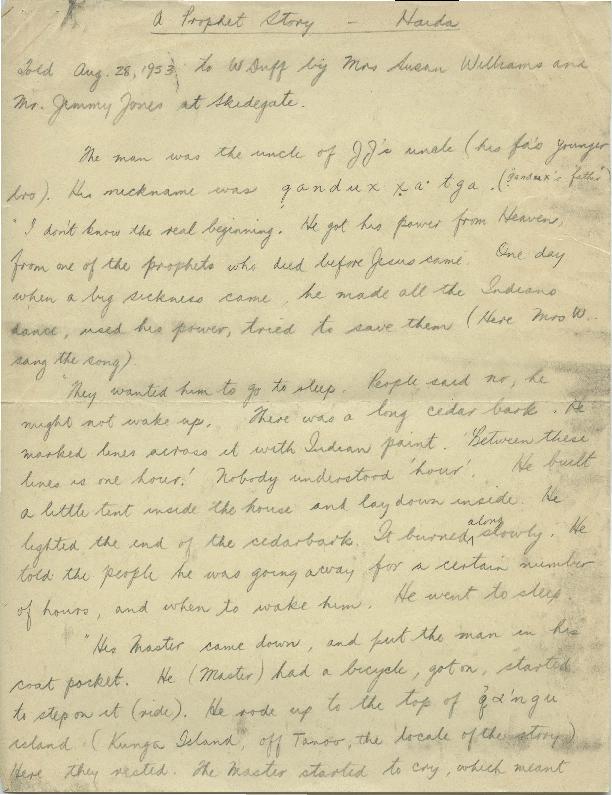 A Prophet Story — Haida
Told Aug. 28, 1953, to W Duff by Mrs Susan Williams and
Mr. Jimmy Jones at Skidegate.
The man was the uncle of JJ's uncle (his fa's younger
bro). His nickname was gandux xa· tga. (gandux's father)
" I don't know the real beginning. He got his power from Heaven,
from one of the prophets who died before Jesus came. One day
when a big sickness came, he made all the Indians
dance, used his power, tried to save them (Here Mrs W.
sang the song)
"They wanted him to go to sleep. People said no, he
might not wake up. There was a long cedar bark. He
marked lines across it with Indian paint. 'Between these
lines is one hour.' Nobody understood 'hour'. He built
a little tent inside the house and lay down inside. He
lighted the end of the cedarbark. It burned along slowly. He
told the people he was going away for a certain number
of hours, and when to wake him. He went to sleep.
"His Master came down, and put the man in his
coat pocket. He (Master) had a bicycle, got on, started
to step on it (ride). He rode up to the top of
island (Kunga Island, off Tanoo, the locale of the story)
Here they rested. The Master started to cry, which meant